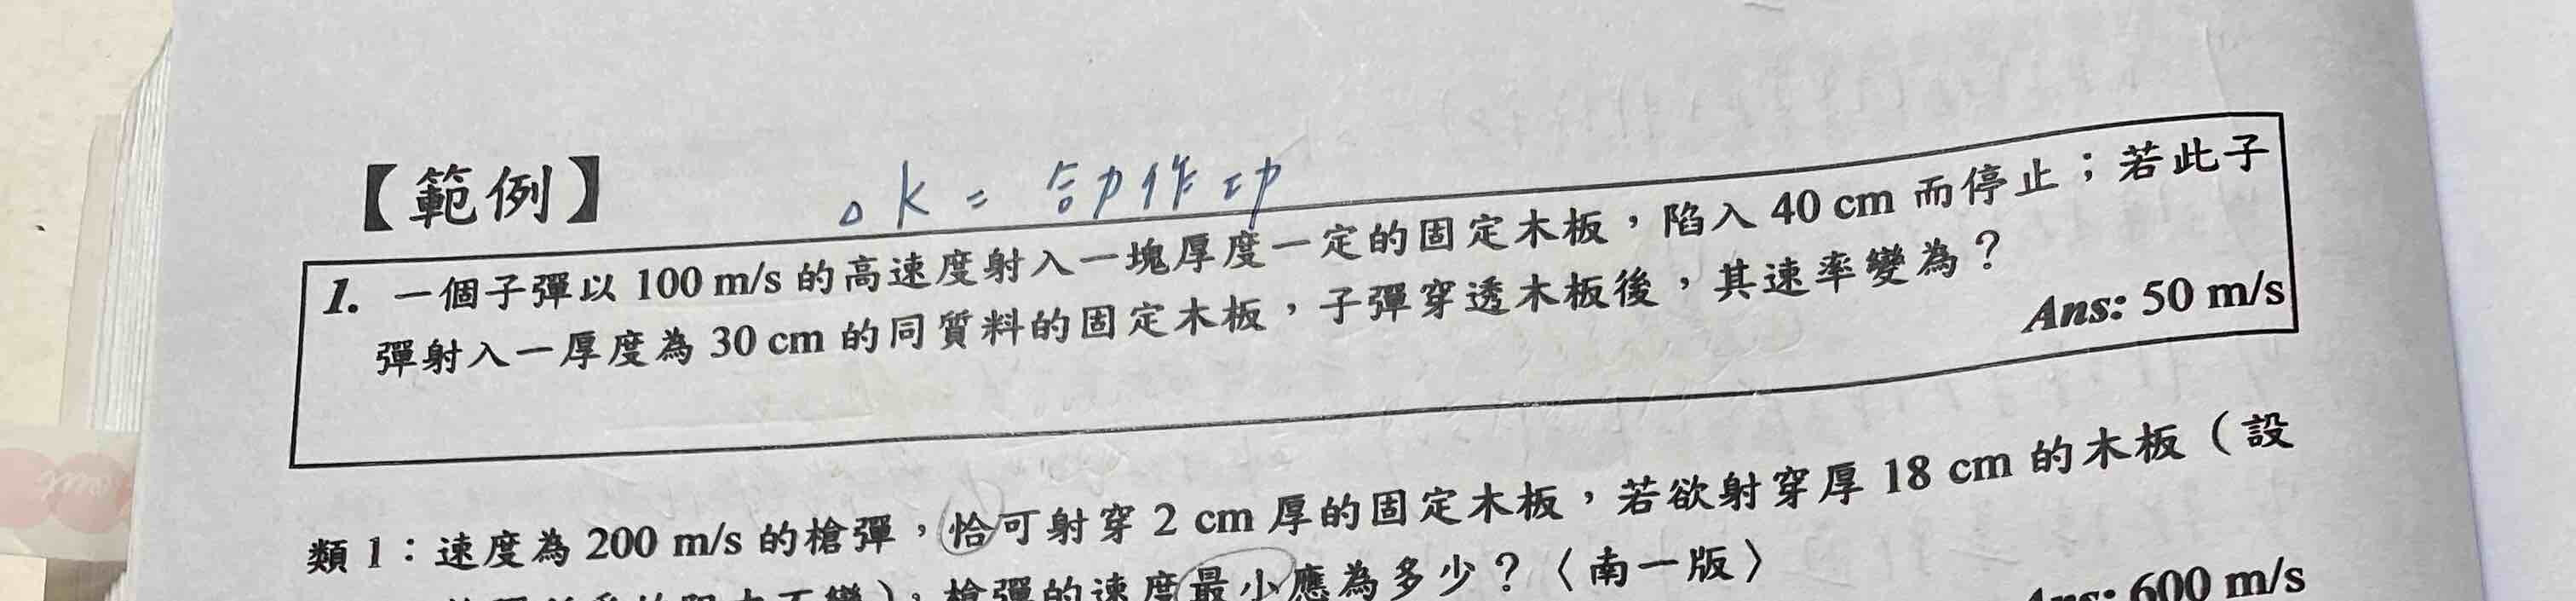 【範例】 △k = 合力作功
1. 一個子彈以 100 m/s 的高速度射入一塊厚度一定的固定木板，陷入 40 cm 而停止；若此子
彈射入一厚度為 30 cm 的同質料的固定木板，子彈穿透木板後，其速率變為？
Ans: 50 m/s
類 1：速度為 200 m/s 的槍彈，恰可射穿 2 cm 厚的固定木板，若欲射穿厚 18 cm 的木板（設
不變），槍彈的速度最小應為多少？〈南一版〉
Ans: 600 m/s